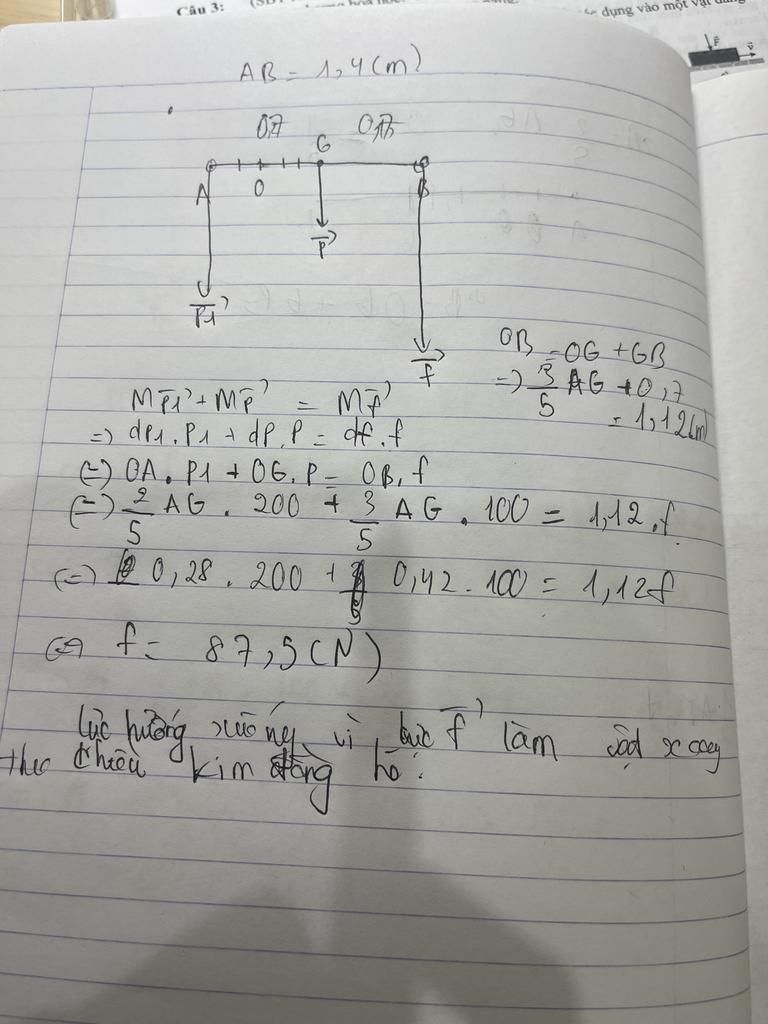 Câu 3:
dụng vào một vật đang
AB = 1,4 (m)
0,7
G
A
O
B
P→
P1→
f→
OB = OG + GB
=> 3/5 AG + 0,7
= 1,12(m)
MP1→ + MP→ = Mf→
=> dP1.P1 + dP.P = df.f
(=) OA.P1 + OG.P = OB.f
(=) 2/5 AG . 200 + 3/5 AG . 100 = 1,12.f
(=) 0,28 . 200 + 0,42 . 100 = 1,12f
(=) f = 87,5 (N)
Lực hướng xuống vì lực f→ làm vật xoay
theo chiều kim đồng hồ.